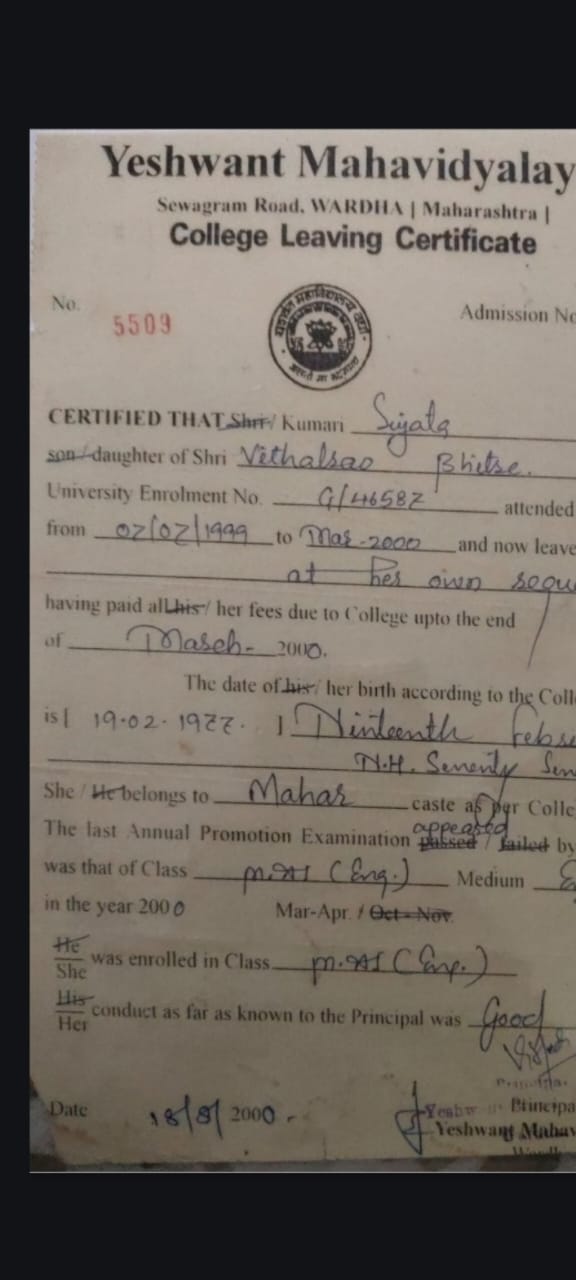 Yeshwant Mahavidyalay
Sewagram Road, WARDHA | Maharashtra |
College Leaving Certificate
No. 5509
Admission No
CERTIFIED THAT Shri / Kumari Sujata
son / daughter of Shri Vithalrao Bhitre.
University Enrolment No. G/46582 attended
from 02/02/1999 to Mar-2000 and now leave
at her own reque
having paid all his / her fees due to College upto the end
of March- 2000.
The date of his / her birth according to the Coll
is | 19.02.1977. | Ninteenth Febr
N.H. Seventy Sev
She / He belongs to Mahar caste as per Colle
appeared
The last Annual Promotion Examination passed / failed by
was that of Class M.A I (Eng.) Medium E
in the year 2000 Mar-Apr. / Oct - Nov.
He
She was enrolled in Class M.A I (Eng.)
His
Her conduct as far as known to the Principal was Good
Date 18/8/2000. Principa
Yeshwant Mahav